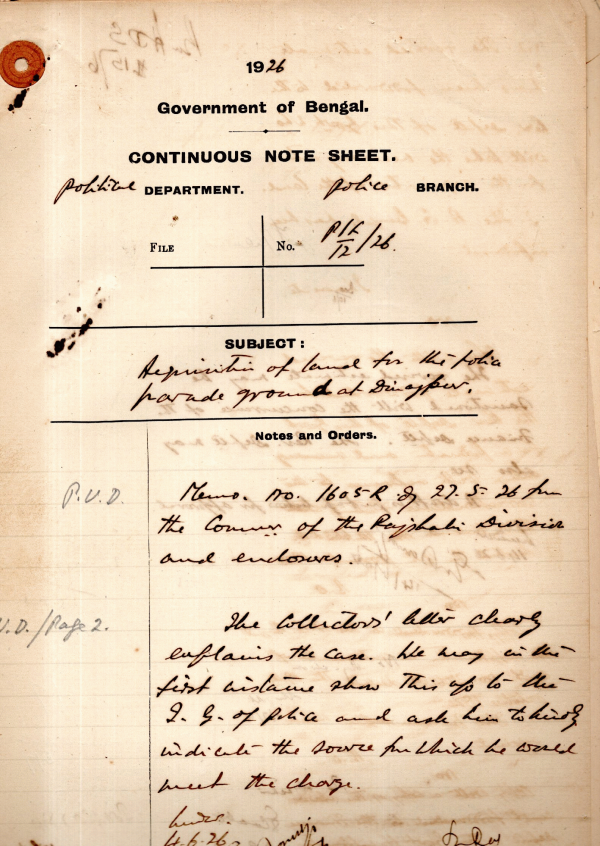 1926
Government of Bengal.
CONTINUOUS NOTE SHEET.
Political DEPARTMENT. Police BRANCH.
FILE No. P1A/12/26.
SUBJECT:
Acquisition of land for the police
parade ground at Dinajpur.
Notes and Orders.
P.U.D. Memo. no. 1605R of 27.5.26 from
the Commr of the Rajshahi Division
and enclosures.
U.D./Page 2. The Collectors' letter clearly
explains the case. We may in the
first instance show this up to the
I. G. of Police and ask him to kindly
indicate the source from which he would
meet the charge.
4.6.26